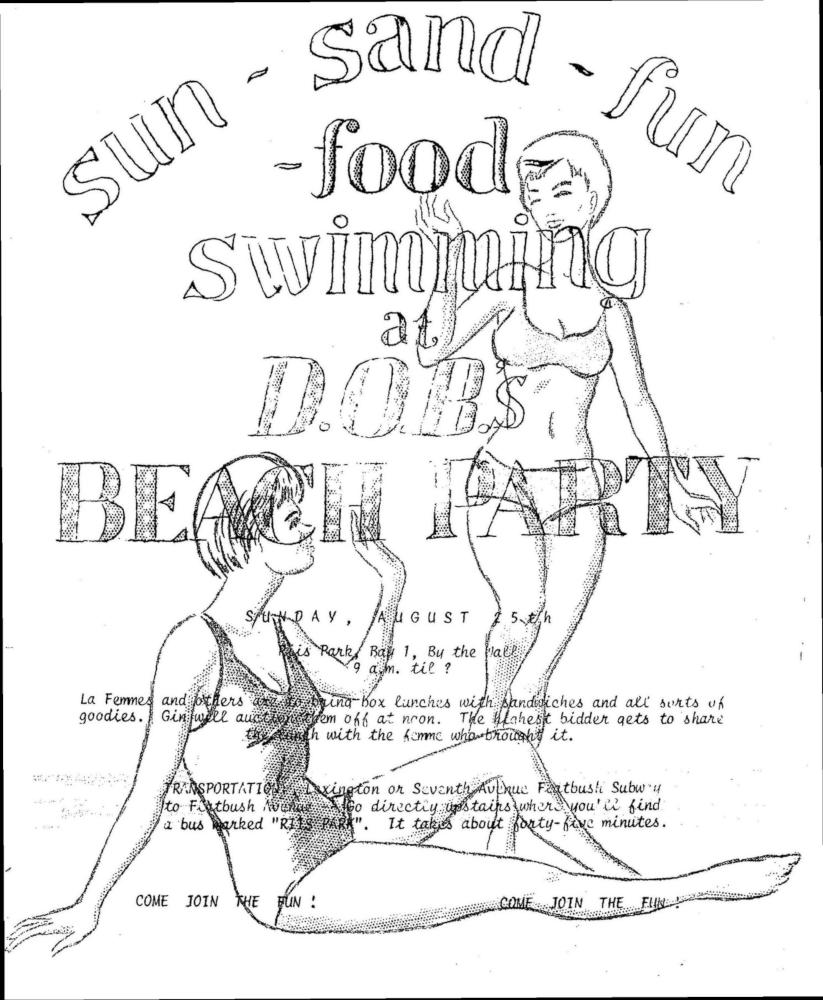 sun - sand - fun
- food
swimming
at
D.O.B.'s
BEACH PARTY
SUNDAY, AUGUST 25th
Riis Park, Bay 1, By the Wall
9 a.m. til ?
La Femmes and others are to bring box lunches with sandwiches and all sorts of
goodies. Gin will auction them off at noon. The highest bidder gets to share
the lunch with the femme who brought it.
TRANSPORTATION: Lexington or Seventh Avenue Flatbush Subway
to Flatbush Avenue. Go directly upstairs where you'll find
a bus marked "RIIS PARK". It takes about forty-five minutes.
COME JOIN THE FUN ! COME JOIN THE FUN !